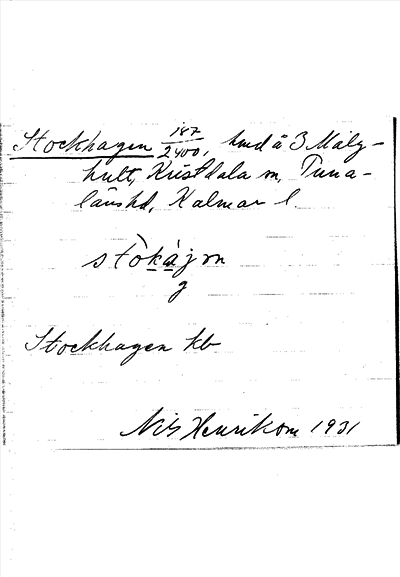 Stockhagen 187/2400, hmd å 3 Målg-
hult, Kristdala sn, Tuna-
länshd, Kalmar l.
stòkájm
g
Stockhagen kb
Nils Henrikson 1931